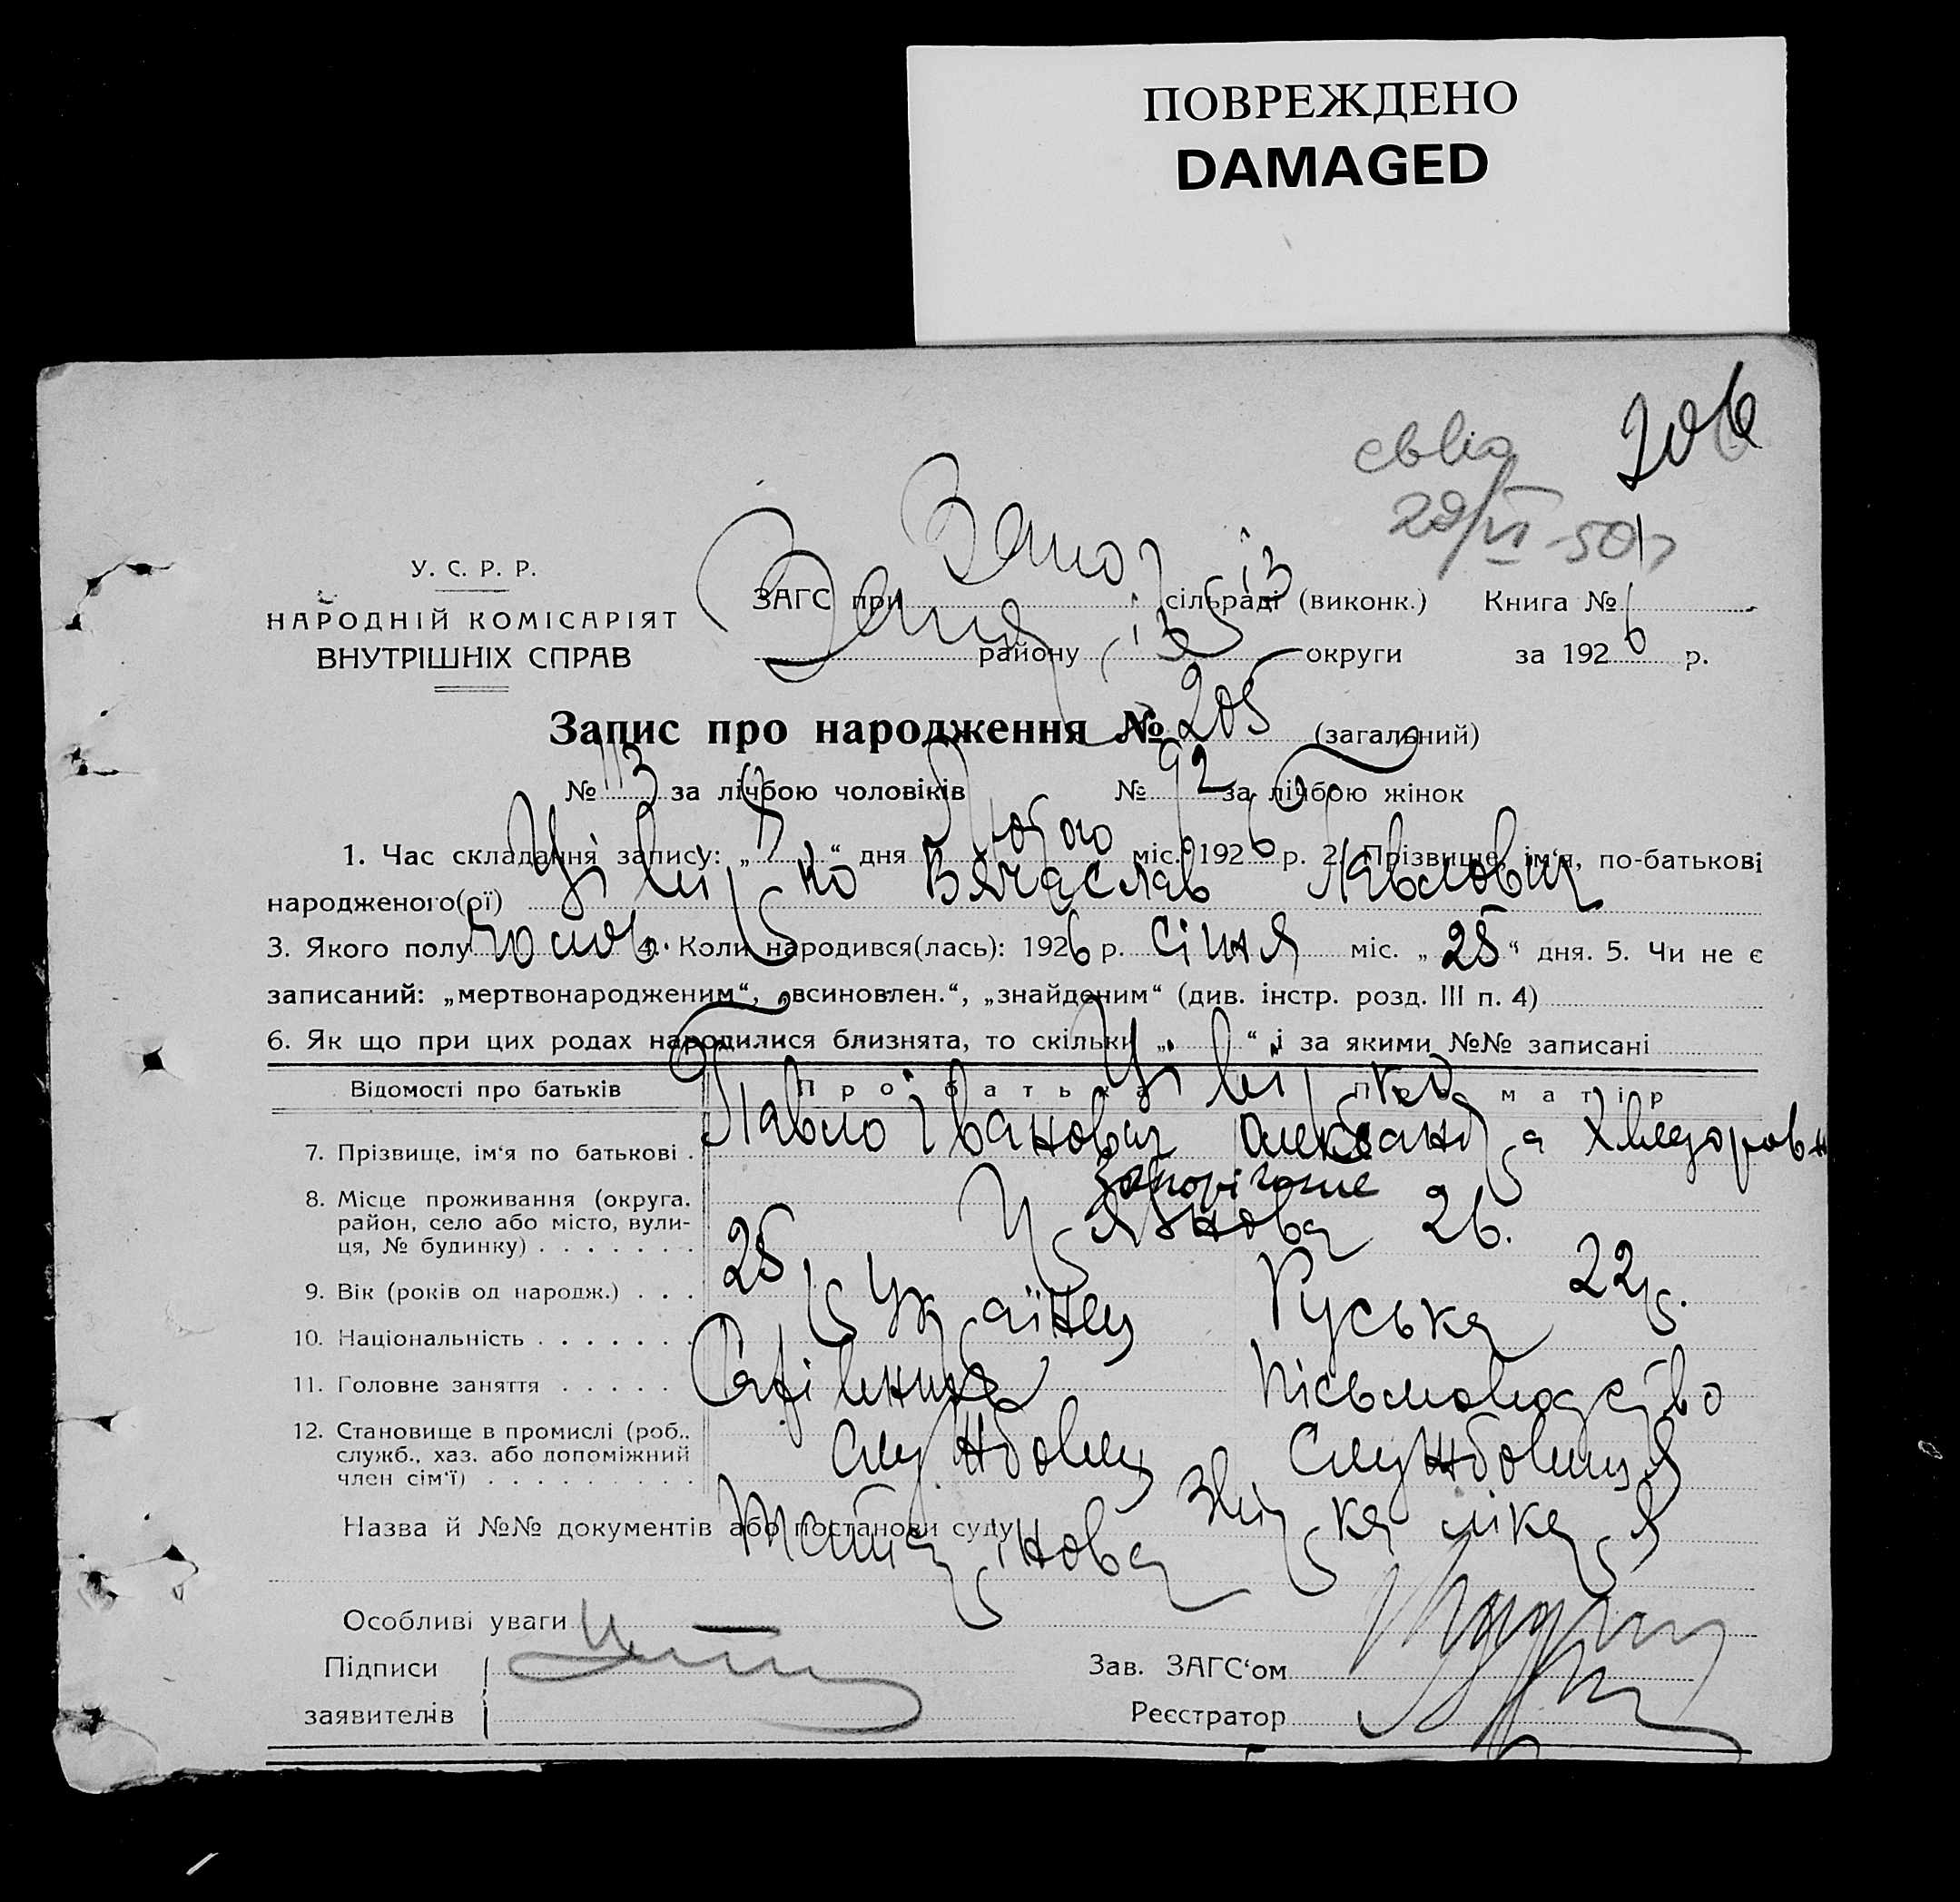 ПОВРЕЖДЕНО
DAMAGED
206
29/VI-50р
У. С. Р. Р.
НАРОДНІЙ КОМІСАРІЯТ
ВНУТРІШНІХ СПРАВ
ЗАГС при сільраді (виконк.) Книга № 
району округи за 1926 р.
Запис про народження № 205 (загальний)
№ 113 за лічбою чоловіків № 92 за лічбою жінок
1. Час складання запису: „ “ дня Лютого міс. 1926 р. 2. Прізвище, ім‘я, по-батькові
народженого(ої) Вячаслав Павлович
3. Якого полу чолов. 4. Коли народився(лась): 1926 р. січня міс. „25“ дня. 5. Чи не є
записаний: „мертвонародженим“, „всиновлен.“, „знайденим“ (див. інстр. розд. III п. 4)
6. Як що при цих родах народилися близнята, то скільки „ “ і за якими №№ записані
Відомості про батьків Про батька Про матір
7. Прізвище, ім‘я по батькові . Павло Іванович Олександра Хведоровн
8. Місце проживання (округа, район, село або місто, вулиця, № будинку) . . . . . . . Запоріжже 26.
9. Вік (років од народж.) . . . 25р 22р.
10. Національність . . . . . . . Українец Руська
11. Головне заняття . . . . . Письмоводство
12. Становище в промислі (роб., служб., хаз. або допоміжний член сім‘ї) . . . . . . . . . Службовец Службовиця
Назва й №№ документів або постанови суду лікаря
Особливі уваги
Підписи
заявителів
Зав. ЗАГС‘ом
Реєстратор